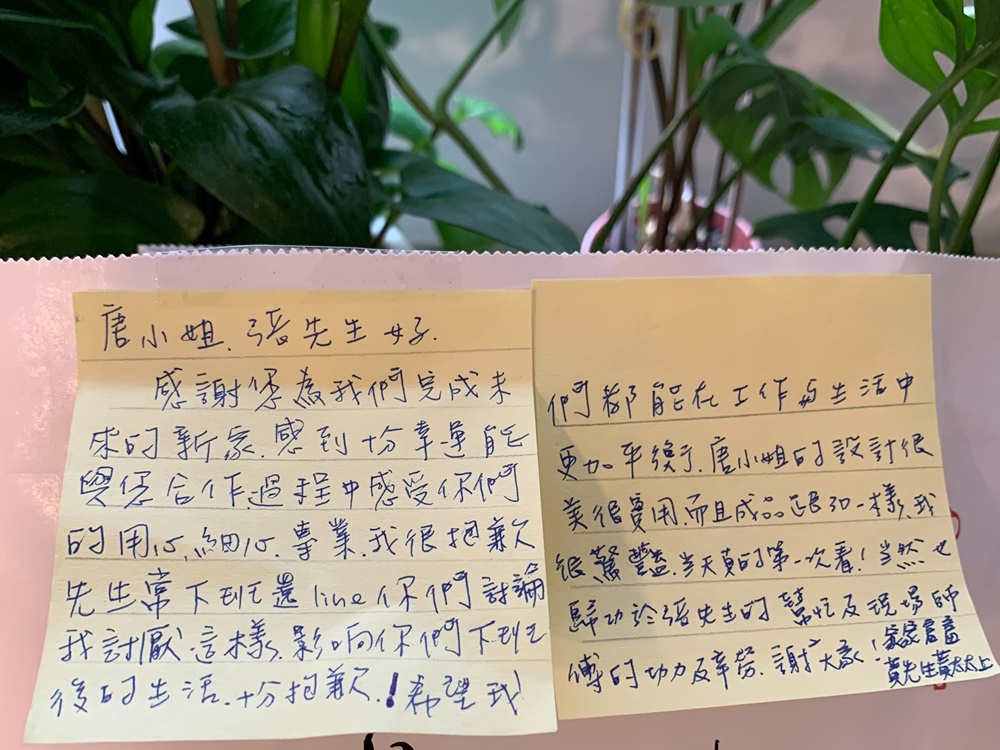 唐小姐、張先生好.
感謝您為我們完成未
來的新家.感到十份幸運能
與您合作.過程中感受你們
的用心,細心.專業.我很抱歉
先生常下班還line你們討論
我討厭這樣.影响你們下班
後的生活.十份抱歉.!希望我
們都能在工作与生活中
更加平衡.唐小姐的設計很
美很實用.而且成品跟3D一樣.我
很驚豔.當天真的第一次看!当然也
歸功於張先生的幫忙及現場師
傅的功力及辛勞.謝謝大家!
家家富富
黃先生黃太太上